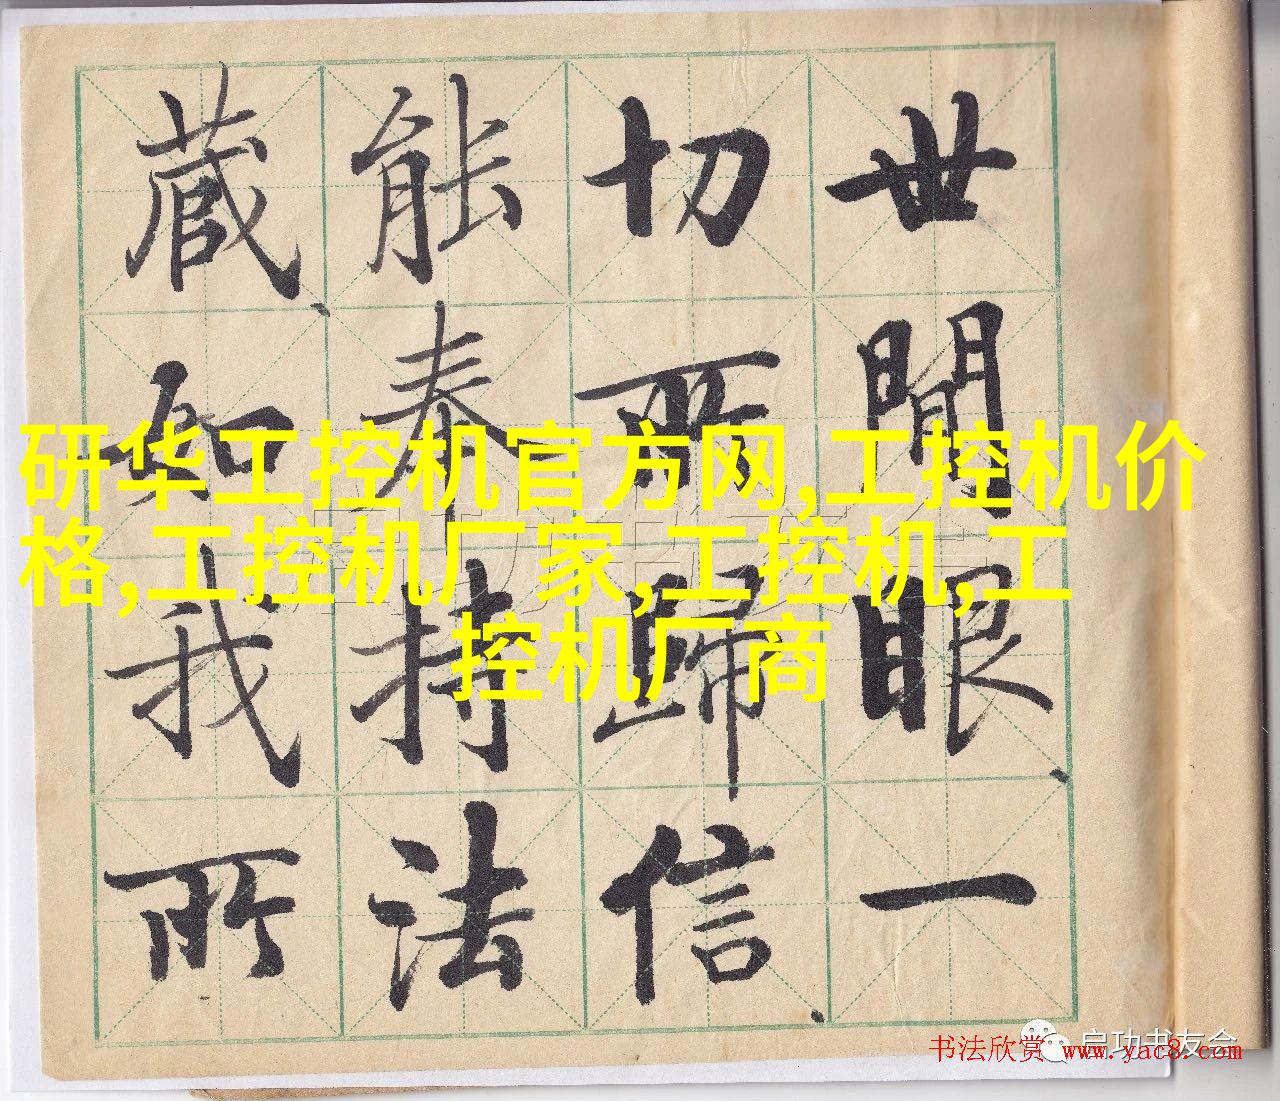 世間眼一
切所歸信
能奉持法
藏如我所
研华工控机官方网,工控机价
格,工控机厂家,工控机,工
控机厂商
启功书友会
书法欣赏 www.yac8.com